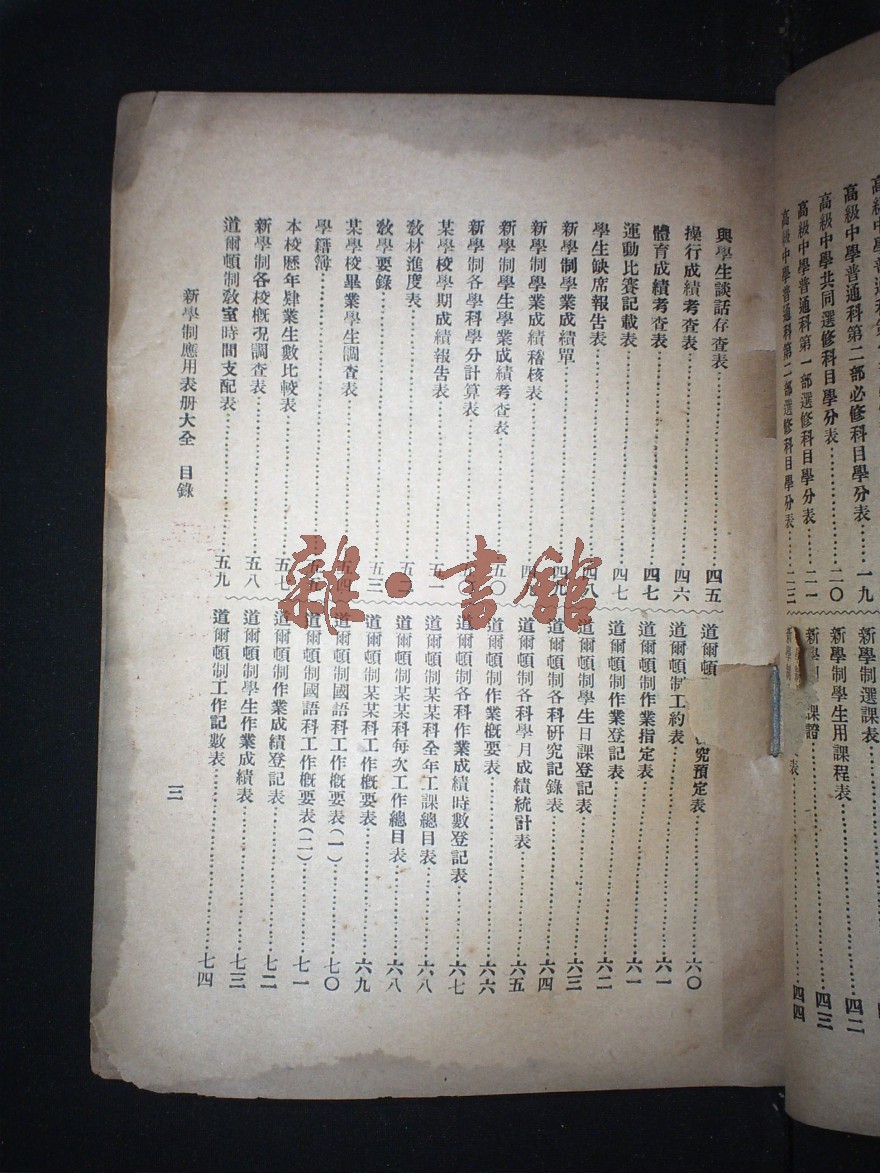 高級中學普通科第
高級中學普通科第二部必修科目學分表……一九
高級中學共同選修科目學分表……二〇
高級中學普通科第一部選修科目學分表……二一
高級中學普通科第二部選修科目學分表……二三
新學制選課表
新學制學生用課程表……四二
新學 課證……四三
新學 表……四四
與學生談話存查表……四五
操行成績考查表……四六
體育成績考查表……四七
運動比賽記載表……四七
學生缺席報告表……四八
新學制學業成績單……四九
新學制學業成績稽核表……四
新學制學生學業成績考查表……五〇
新學制各學科學分計算表……〇
某學校學期成績報告表……五一
教材進度表……五
教學要錄……五三
某學校畢業學生調查表……五四
學籍簿……五五
本校歷年肄業生數比較表……五七
新學制各校概況調查表……五八
道爾頓制教室時間支配表……五九
道爾頓 究預定表……六〇
道爾頓制工約表……六一
道爾頓制作業指定表……六一
道爾頓制作業登記表……六二
道爾頓制學生日課登記表……六三
道爾頓制各科研究記錄表……六四
道爾頓制各科學月成績統計表……六五
道爾頓制作業概要表……六六
道爾頓制各科作業成績時數登記表……六七
道爾頓制某某科全年工課總目表……六八
道爾頓制某某科每次工作總目表……六八
道爾頓制某某科工作概要表……六九
道爾頓制國語科工作概要表(一)……七〇
道爾頓制國語科工作概要表(二)……七一
道爾頓制作業成績登記表……七二
道爾頓制學生作業成績表……七三
道爾頓制工作記數表……七四
新學制應用表册大全 目錄
三
雜·書館